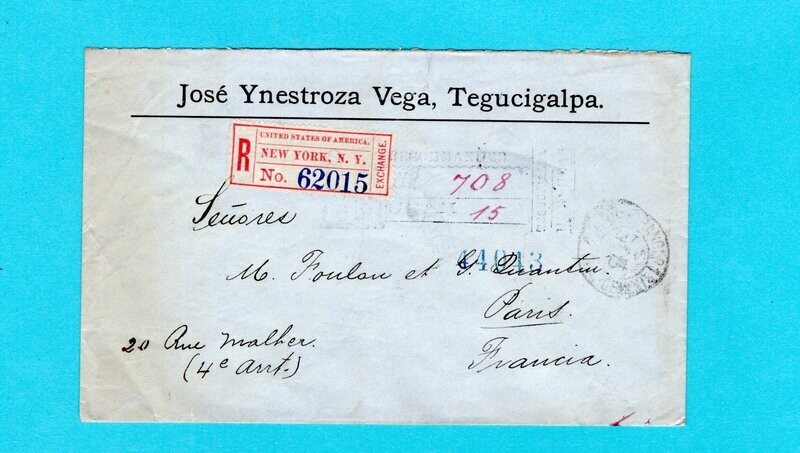 José Ynestroza Vega, Tegucigalpa.
R
UNITED STATES OF AMERICA.
NEW YORK, N. Y.
No. 62015
EXCHANGE.
708
15
Señores
44043
M. Foulon et G. Quantin.
Paris.
20 Rue Malher.
(4e Arrt.)
Francia.